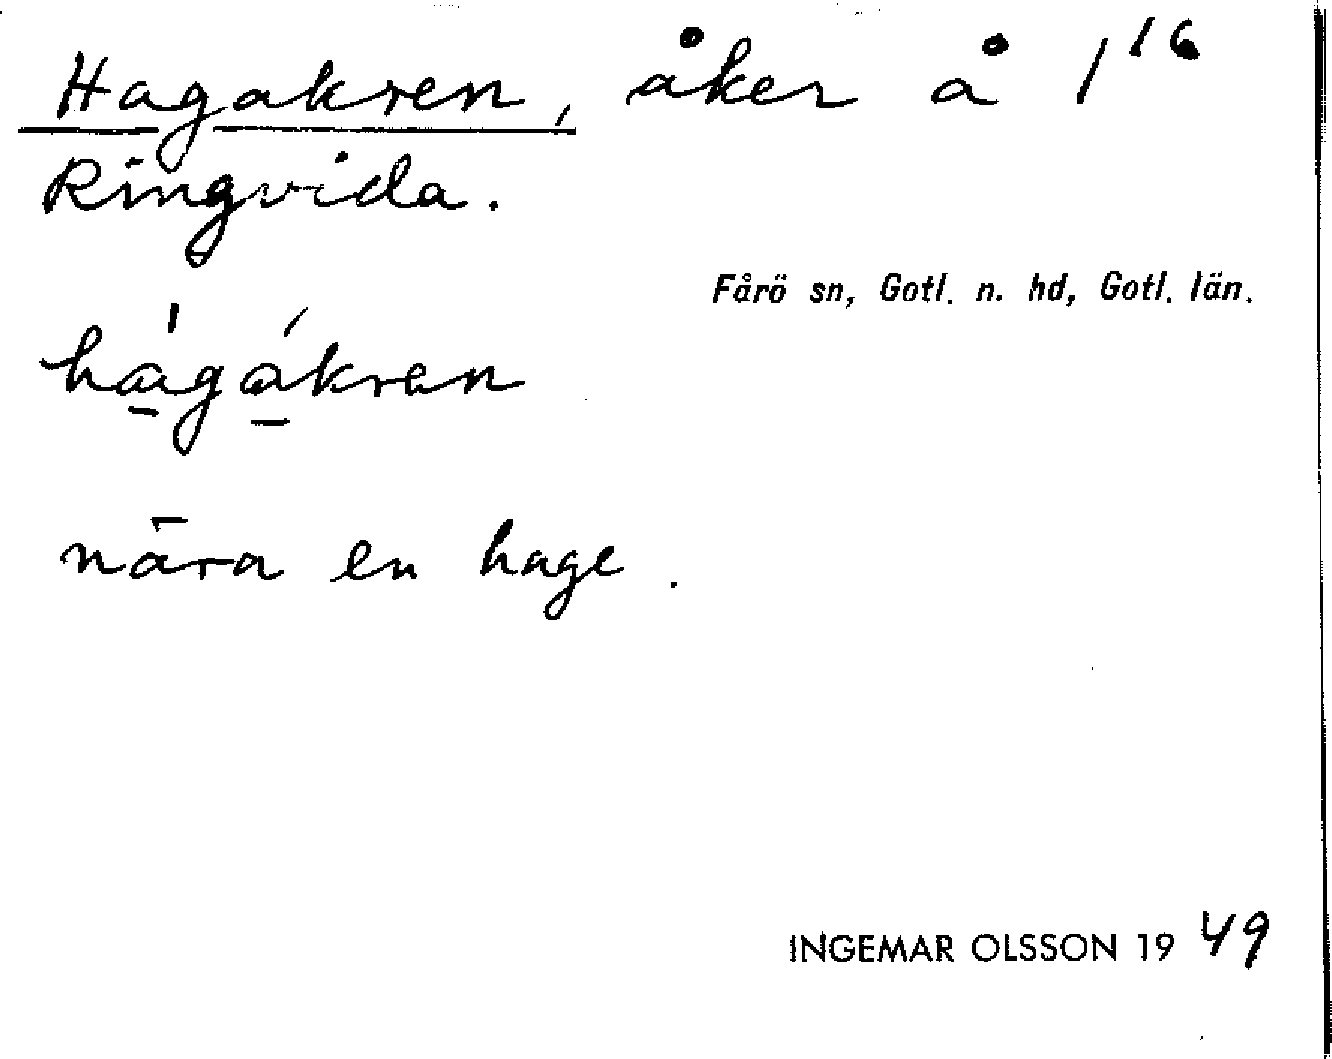 Hagakren, åker å 1¹⁶
Ringvida.
Fårö sn, Gotl. n. hd, Gotl. län.
ha̱̍gá̱kren
nära en hage.
INGEMAR OLSSON 1949